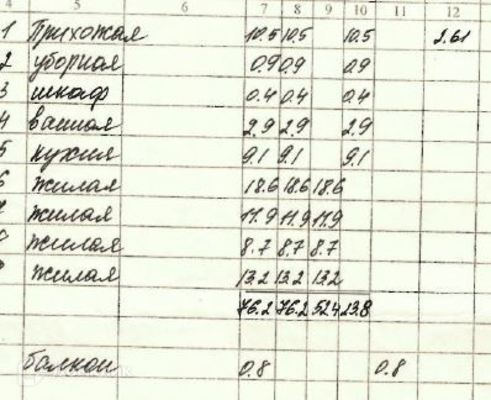 4 5 6 7 8 9 10 11 12
1 Прихожая 10.5 10.5 10.5 2.61
2 уборная 0.9 0.9 0.9
3 шкаф 0.4 0.4 0.4
4 ванная 2.9 2.9 2.9
5 кухня 9.1 9.1 9.1
6 жилая 18.6 18.6 18.6
7 жилая 11.9 11.9 11.9
жилая 8.7 8.7 8.7
жилая 13.2 13.2 13.2
76.2 76.2 52.4 23.8
балкон 0.8 0.8